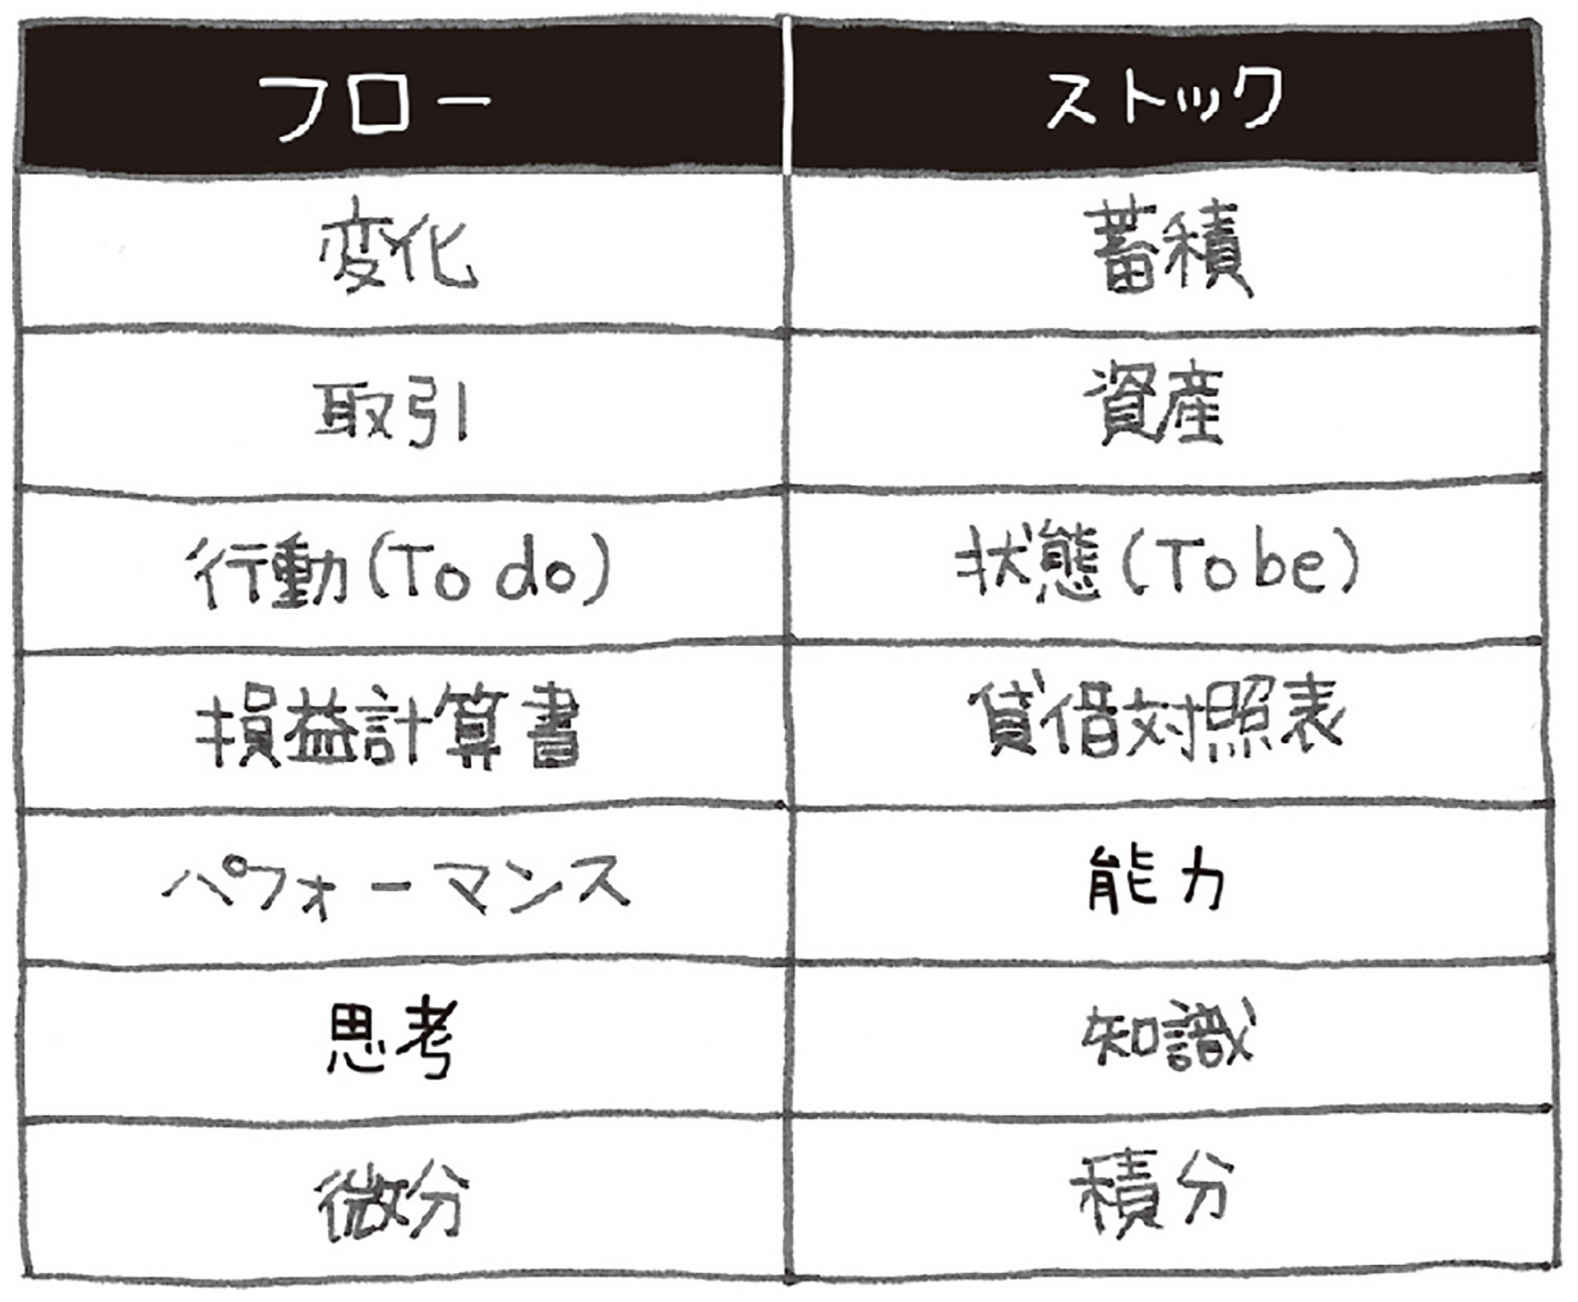 フロー ストック
変化 蓄積
取引 資産
行動(To do) 状態(To be)
損益計算書 貸借対照表
パフォーマンス 能力
思考 知識
微分 積分